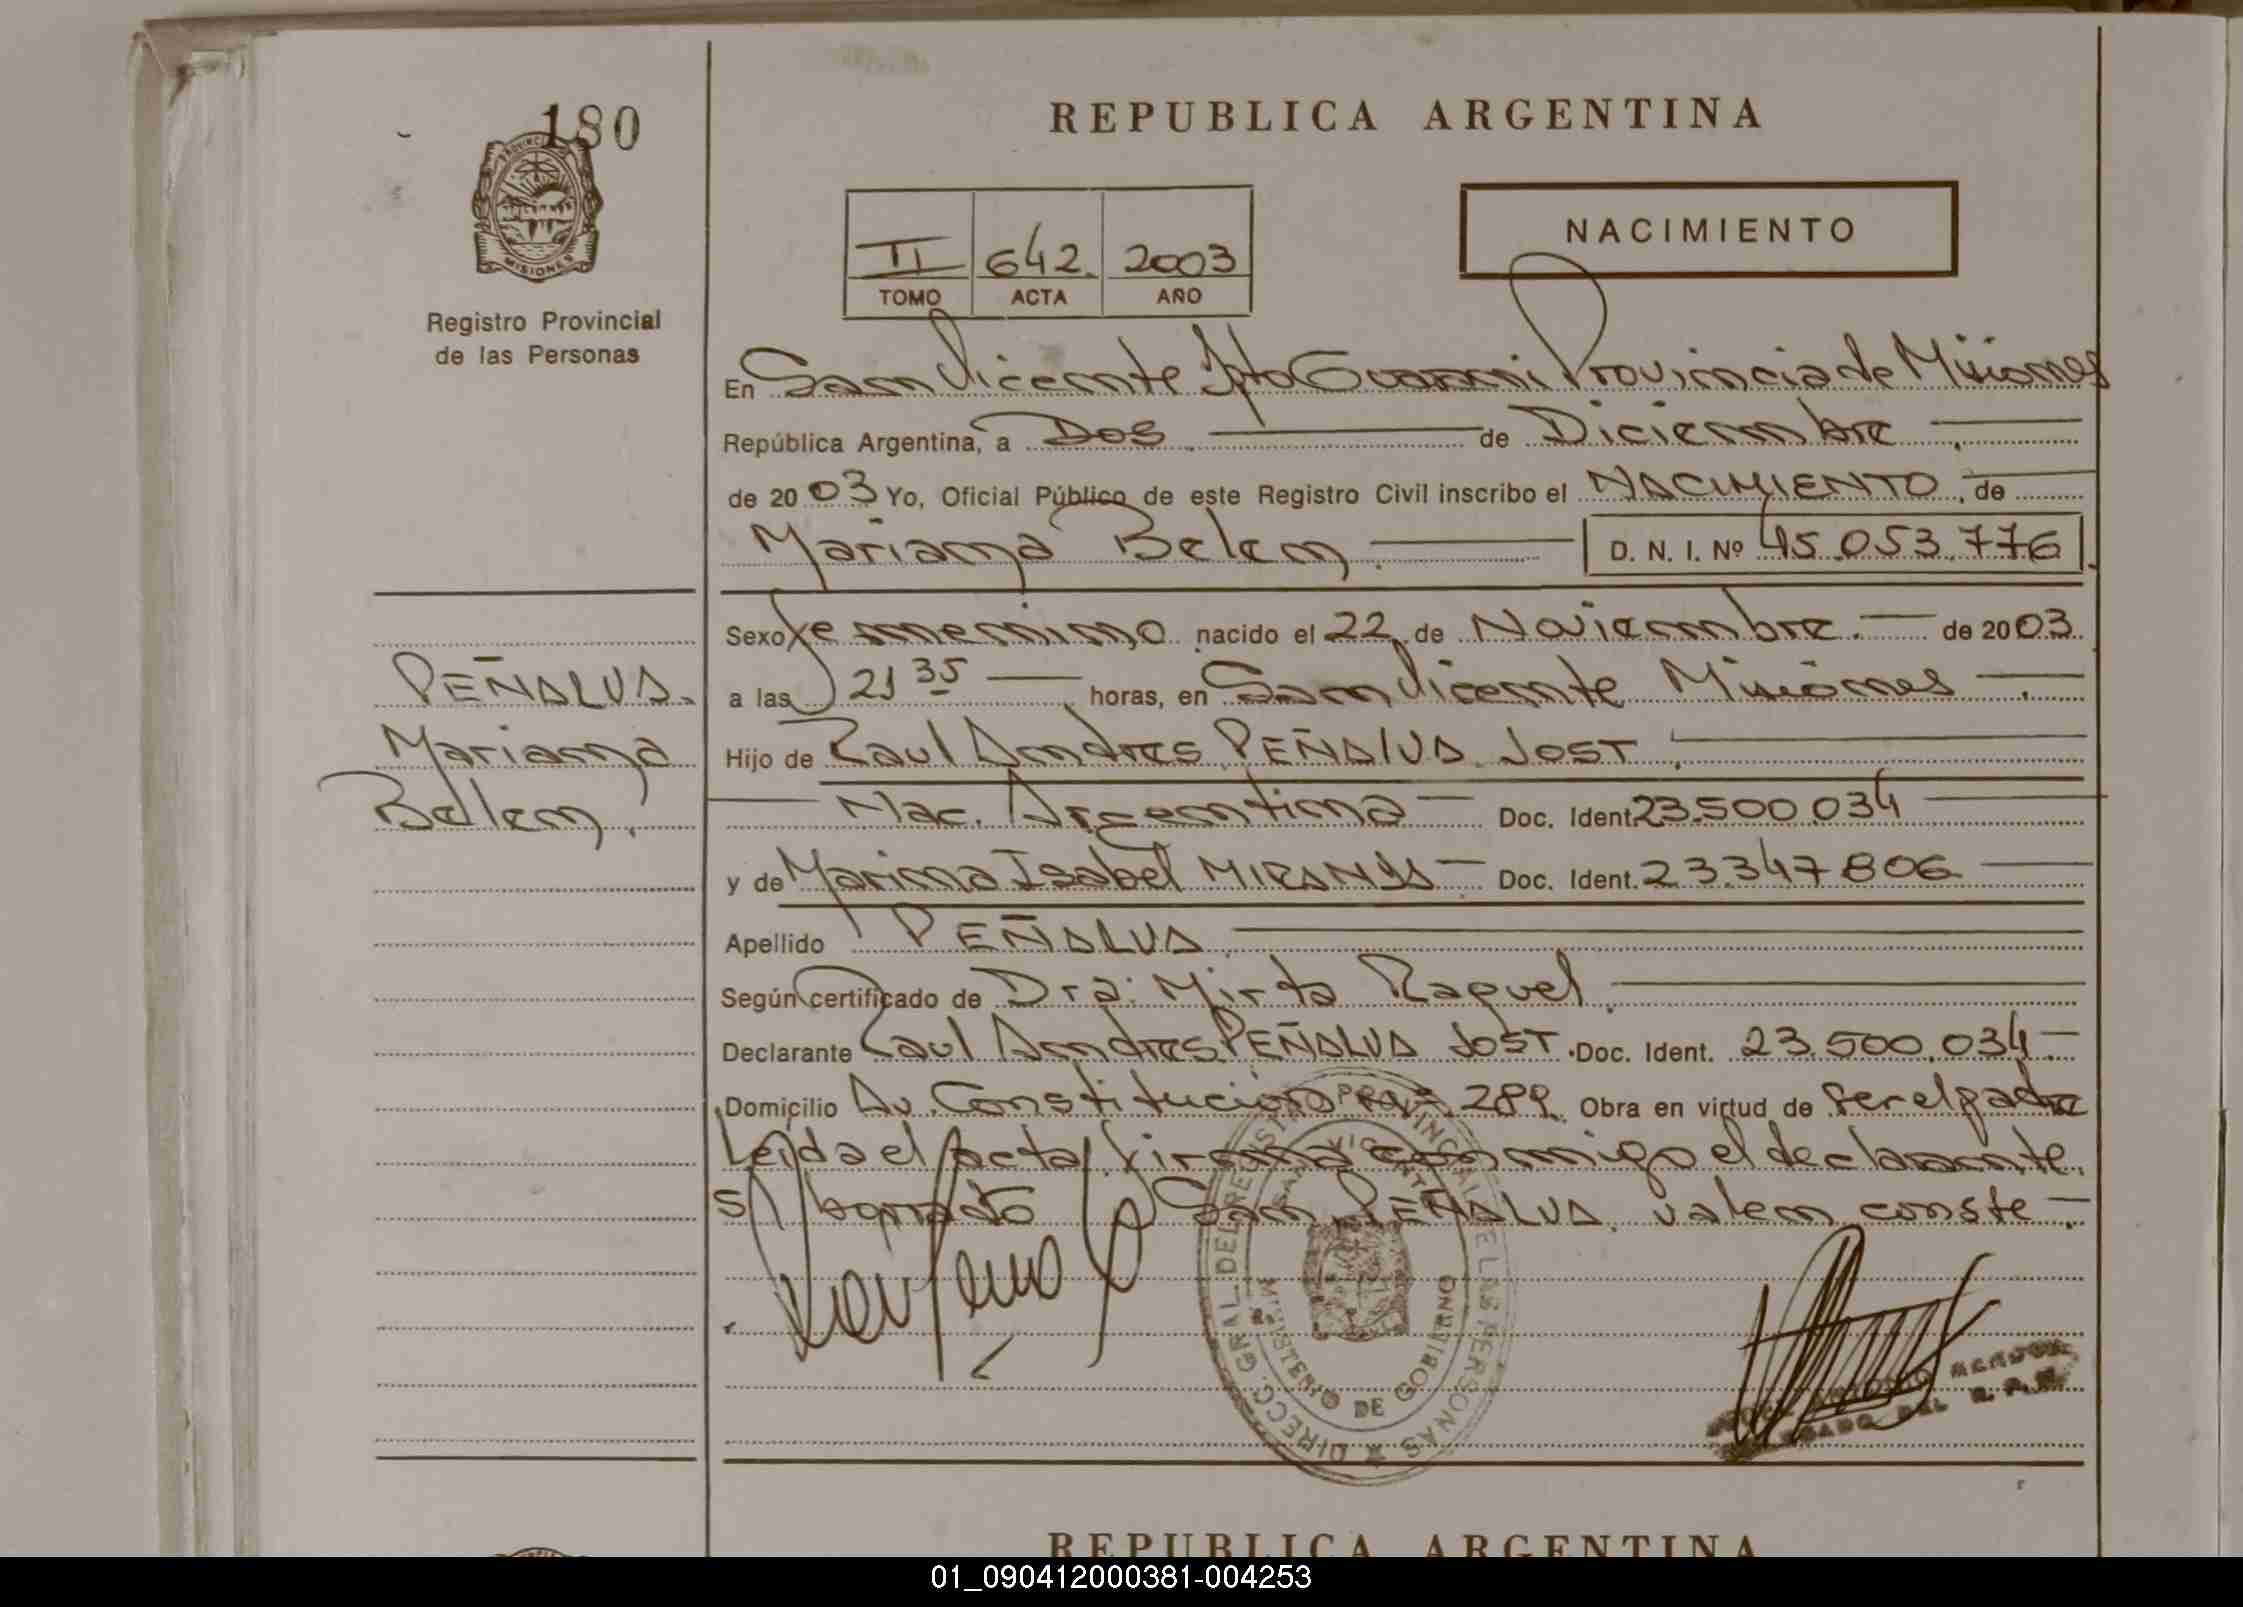 180
PROVINCIA
MISIONES
Registro Provincial
de las Personas
REPUBLICA ARGENTINA
II 642 2003
TOMO ACTA AÑO
NACIMIENTO
En San Vicente Dpto Guarani Provincia de Misiones
República Argentina, a Dos de Diciembre
de 2003 Yo, Oficial Público de este Registro Civil inscribo el NACIMIENTO, de
Mariana Belem D. N. I. Nº 45.053.776
Sexo Femenino nacido el 22 de Noviembre de 2003
a las 21 35 horas, en San Vicente Misiones
Hijo de Raul Andres PEÑALVA JOST
Nac. Argentina Doc. Ident. 23.500.034
y de Marina Isabel MIRANDA Doc. Ident. 23.347.806
Apellido PEÑALVA
Según certificado de Dra: Mirta Raquel
Declarante Raul Andres PEÑALVA JOST. Doc. Ident. 23.500.034
Domicilio Av. Constitución 289 Obra en virtud de ser el padre
Leida el acta firma conmigo el declarante.
S/ borrado San PEÑALVA valen conste
PEÑALVA.
Mariana
Bellem.
DIRECC. GRAL. DEL REGISTRO PROVINCIAL DE LAS PERSONAS
SAN VICENTE
MINISTERIO DE GOBIERNO
DEL R. P. P.
REPUBLICA ARGENTINA
01_090412000381-004253